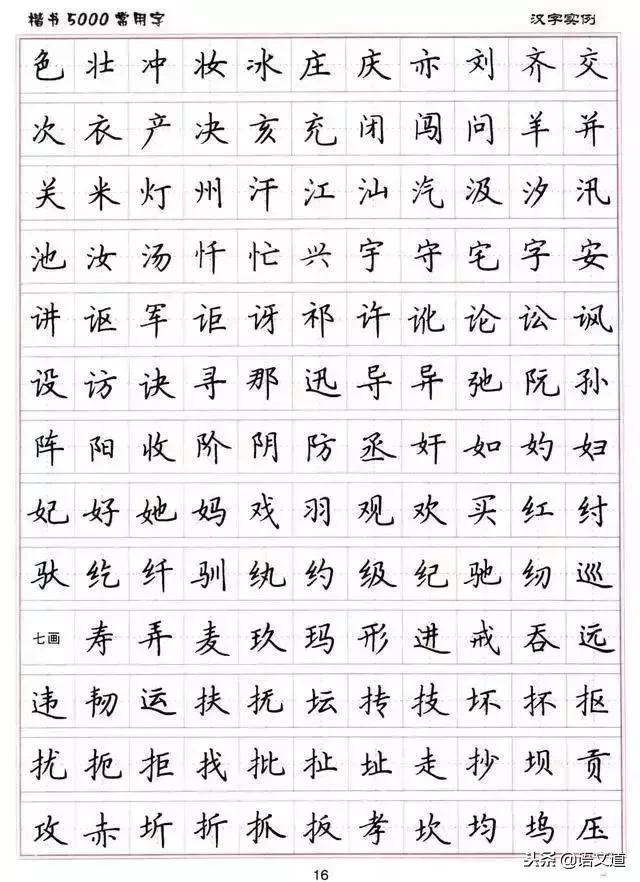 楷书5000常用字 汉字实例
色 壮 冲 妆 冰 庄 庆 亦 刘 齐 交
次 衣 产 决 亥 充 闭 闯 问 羊 并
关 米 灯 州 汗 江 汕 汽 汲 汐 汛
池 汝 汤 忏 忙 兴 宇 守 宅 字 安
讲 讴 军 讵 讶 祁 许 讹 论 讼 讽
设 访 诀 寻 那 迅 导 异 弛 阮 孙
阵 阳 收 阶 阴 防 丞 奸 如 妁 妇
妃 好 她 妈 戏 羽 观 欢 买 红 纣
驮 纥 纤 驯 纨 约 级 纪 驰 纫 巡
七画 寿 弄 麦 玖 玛 形 进 戒 吞 远
违 韧 运 扶 抚 坛 抟 技 坏 抔 抠
扰 扼 拒 找 批 扯 址 走 抄 坝 贡
攻 赤 圻 折 抓 扳 孝 坎 均 坞 压
16
头条@语文道